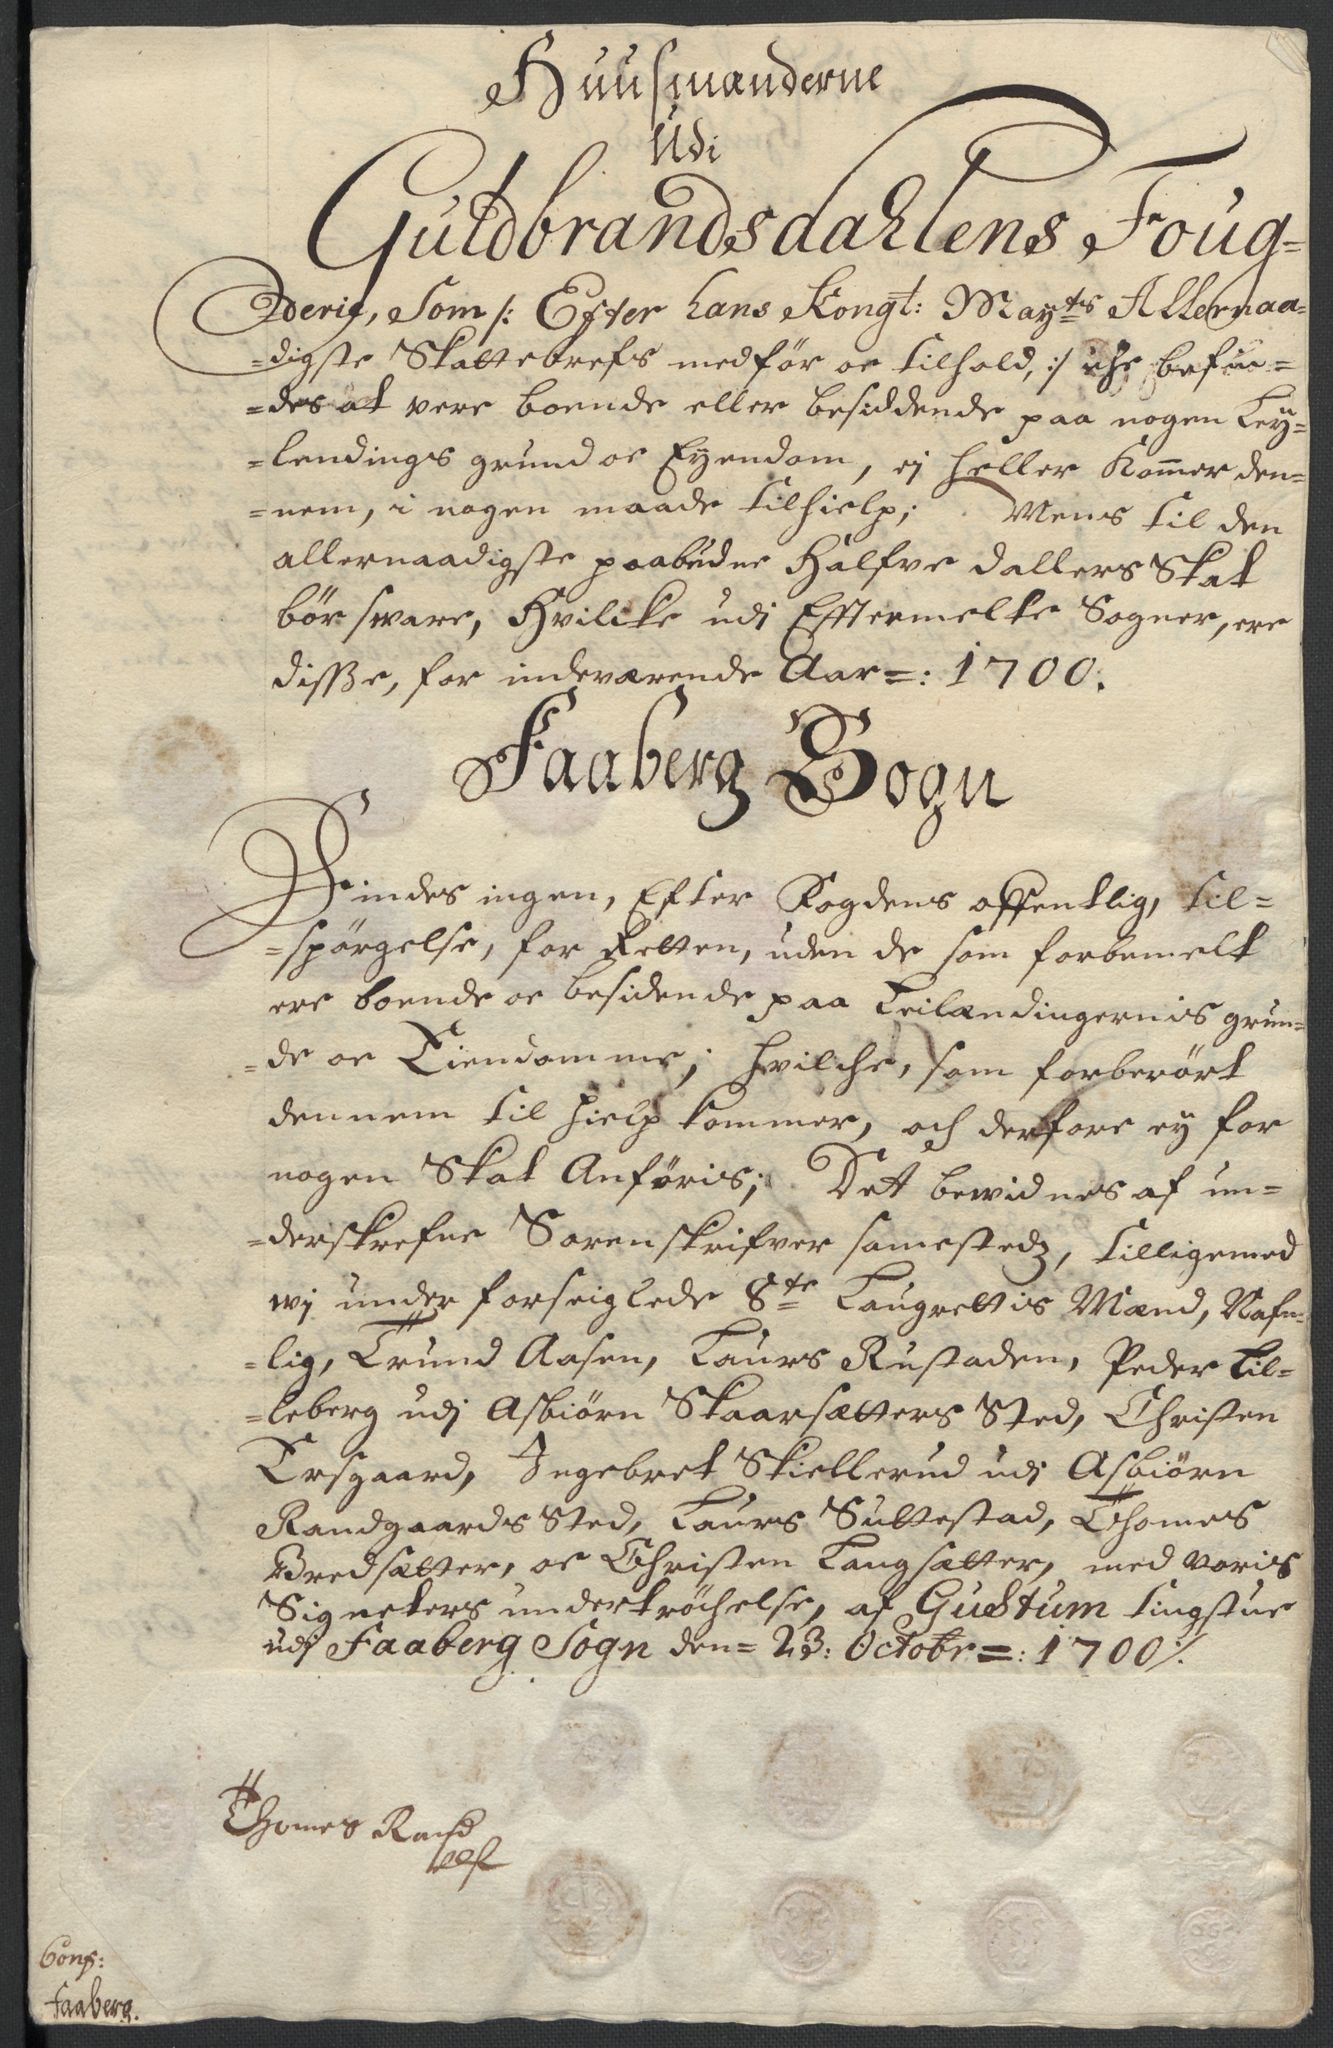 Huusmænderne
Udi
Guldbrandsdahlens Foug=
Dderie, Som /: Efter hans Kongl: Mayts Allernaa=
=digste Skattebrefs medfør oc tilhold, :/ iche befin=
=des at vere boende eller besiddende paa nogen Ley=
=lendings grund oc Eyendom, ej heller Kom̄er den=
=nem, i nogen maade tilhielp; Mens til den
allernaadigste paabudne Halfve dallers Skat
bør svare, Hvilcke udj Efftermelte Sogner, ere
disße, for indeværende Aar =: 1700:
Faaberg Sogn
Findes ingen, Efter Fogdens offentlig, til=
=spørgelse, for Retten, uden de som forbemelt
ere boende oc besidende paa Leilændingernis grun=
=de oc Eiendomme; hvilche, som forberørt
dennem til hielp kommer, och derfore ey for
nogen Skat Anføris; Det bewidnes af un=
=derskrefne Sorenskrifver samestedz, tilligemed
wj under forseiglede 8te Laugrettis Mænd, Nafn=
=lig, Trund Aasen, Laurs Rustaden, Peder Lil=
=leberg udj Asbiørn Skaarsætters Sted, Christen
Ersgaard, Ingebret Skiellerud udj Asbiørn
Randgaards Sted, Laurs Suttestad, Thomes
Bredsætter, oc Christen Langsætter, med voris
Signeters undertrøchelse, af Gustum tingstue
udj Faaberg Sogn den= 23: Octobr =: 1700 ./.
Thomes
Cons:
Faaberg.